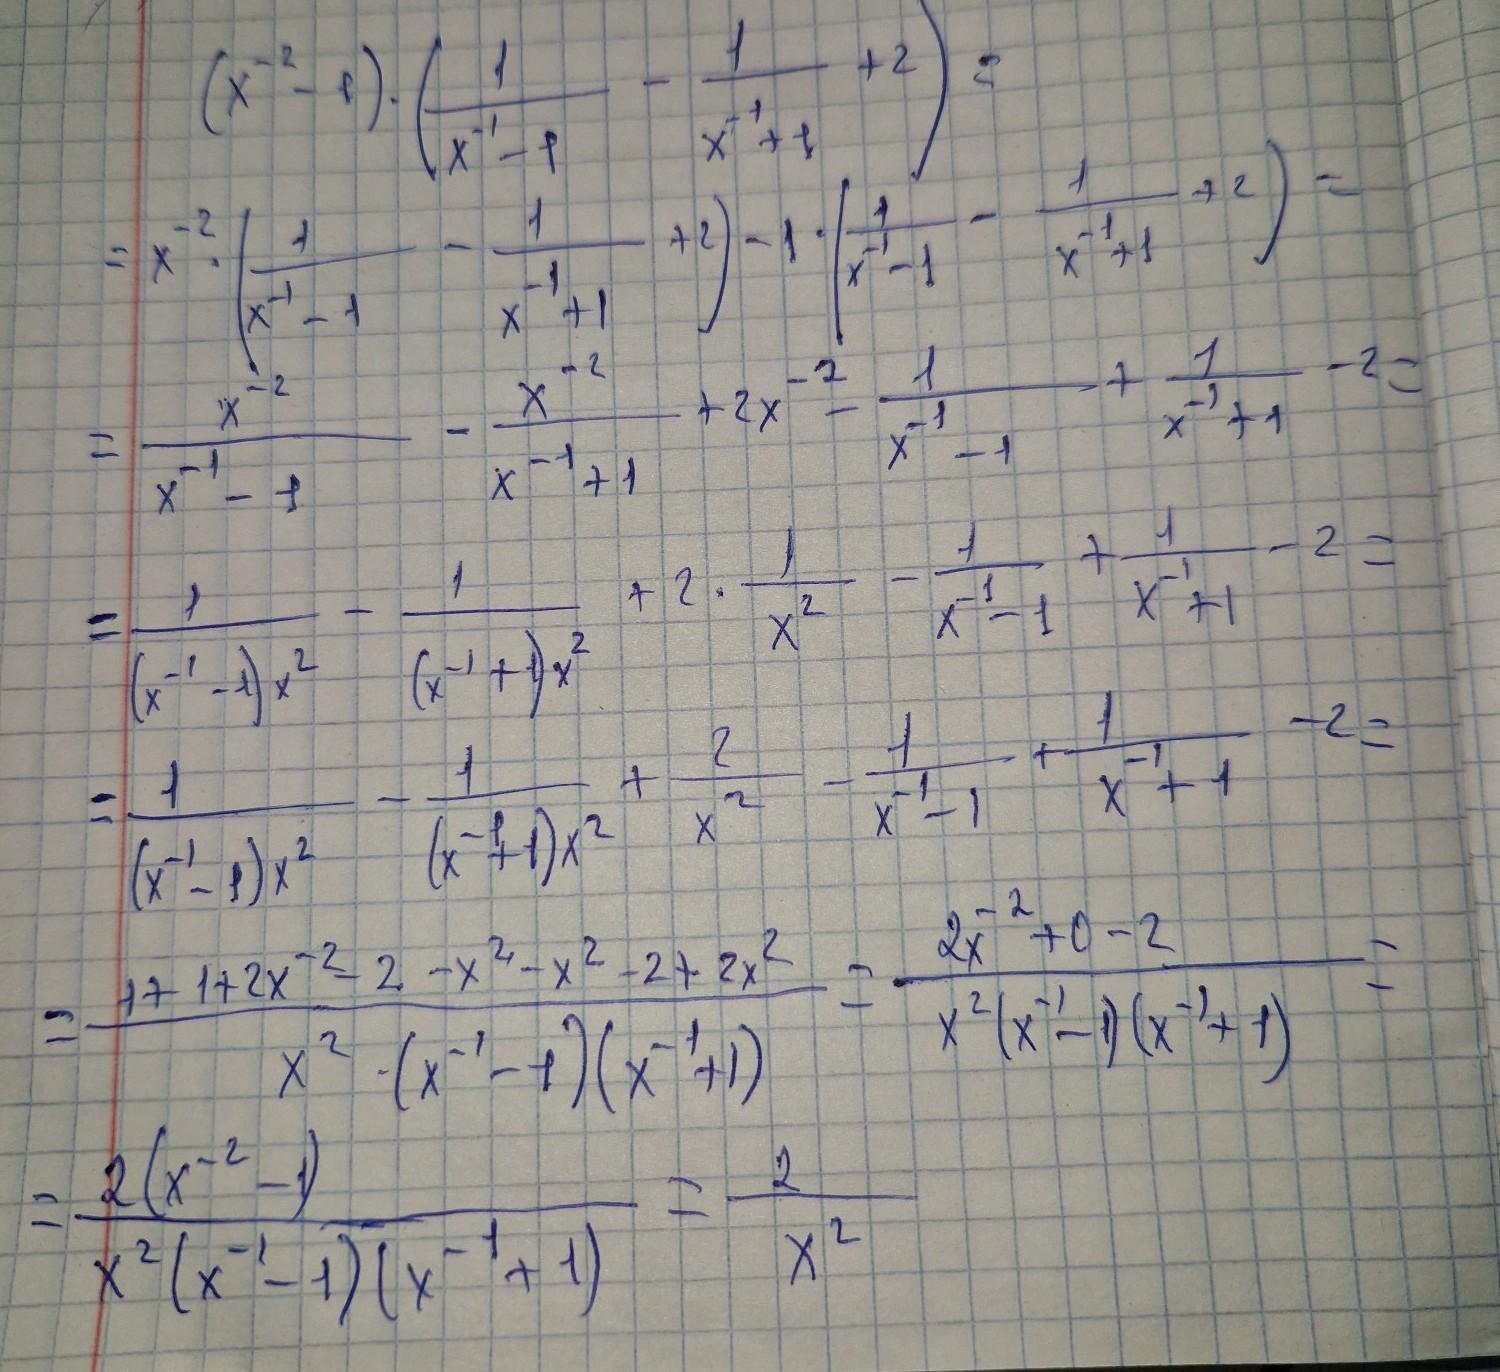 (x⁻² - 1) · (1/(x⁻¹ - 1) - 1/(x⁻¹ + 1) + 2) =
= x⁻² · (1/(x⁻¹ - 1) - 1/(x⁻¹ + 1) + 2) - 1 · (1/(x⁻¹ - 1) - 1/(x⁻¹ + 1) + 2) =
= x⁻²/(x⁻¹ - 1) - x⁻²/(x⁻¹ + 1) + 2x⁻² - 1/(x⁻¹ - 1) + 1/(x⁻¹ + 1) - 2 =
= 1/((x⁻¹ - 1)x²) - 1/((x⁻¹ + 1)x²) + 2 · 1/x² - 1/(x⁻¹ - 1) + 1/(x⁻¹ + 1) - 2 =
= 1/((x⁻¹ - 1)x²) - 1/((x⁻¹ + 1)x²) + 2/x² - 1/(x⁻¹ - 1) + 1/(x⁻¹ + 1) - 2 =
= (1 + 1 + 2x⁻² - 2 - x² - x² - 2 + 2x²)/(x² · (x⁻¹ - 1)(x⁻¹ + 1)) = (2x⁻² + 0 - 2)/(x²(x⁻¹ - 1)(x⁻¹ + 1)) =
= 2(x⁻² - 1)/(x²(x⁻¹ - 1)(x⁻¹ + 1)) = 2/x²